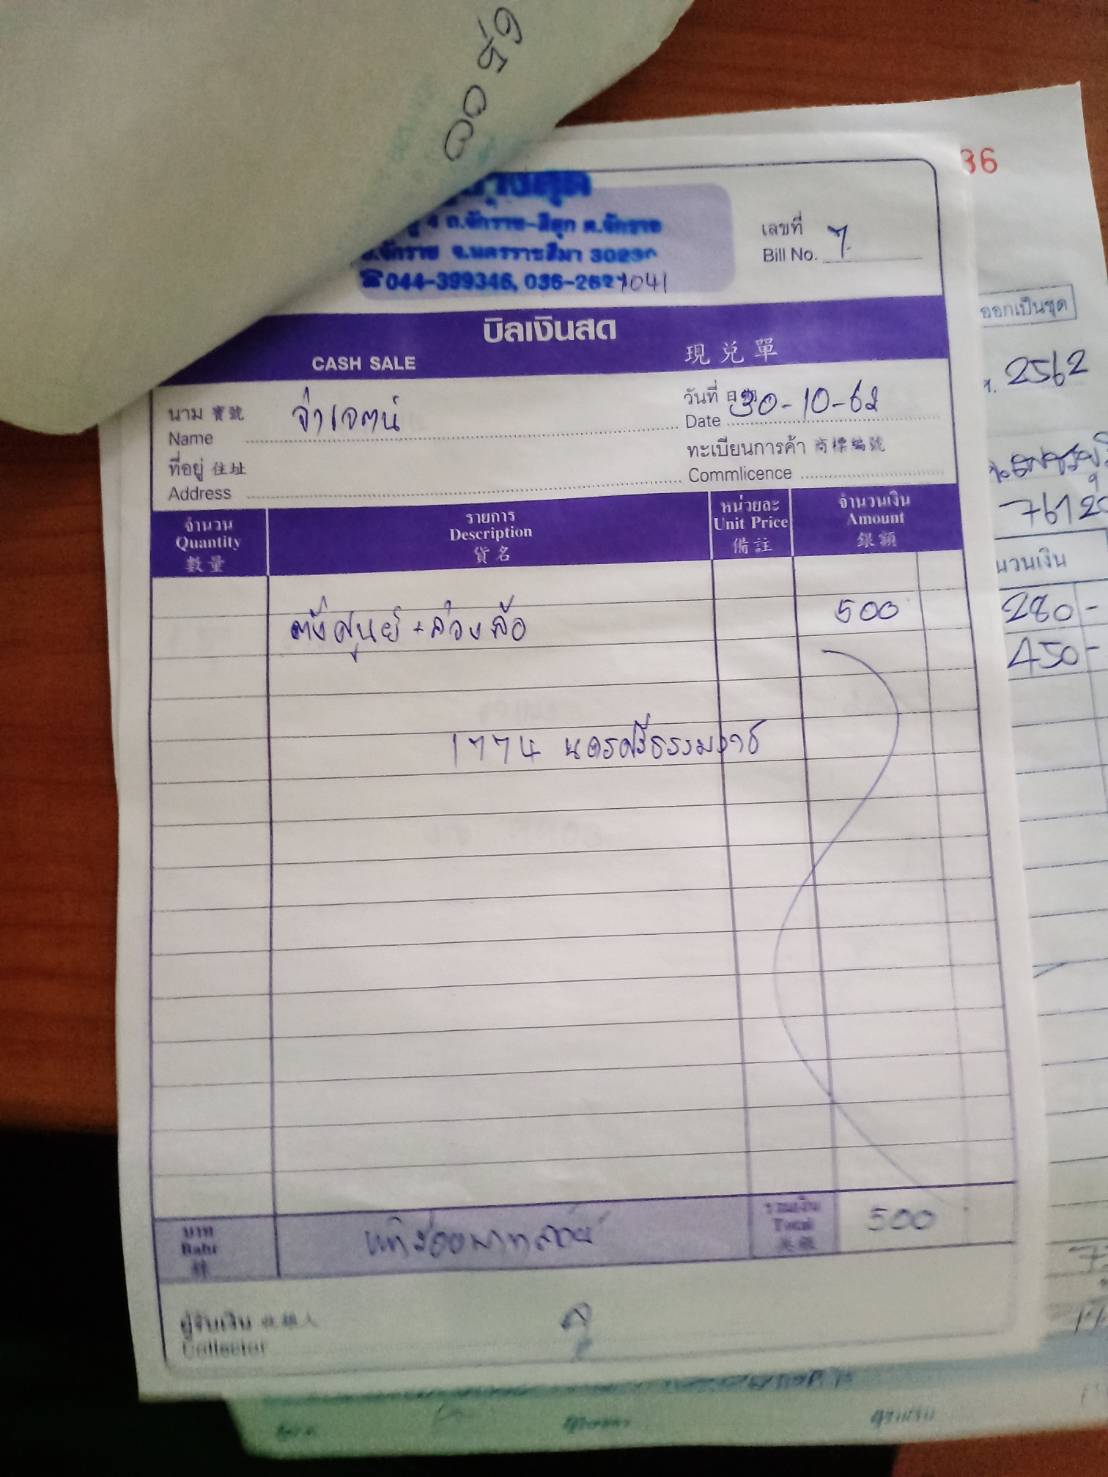 00 5
36
4 ถ.จักราช-สีสุก ต.จักราช
จ.นครราชสีมา 30230
☎044-399346, 036-2627041
เลขที่
Bill No. 7
บิลเงินสด
CASH SALE 現兌單
ออกเป็นชุด
2562
นาม 寶號
Name จ่าเจตน์
วันที่ 日期 30-10-62
Date
ที่อยู่ 住址
Address
ทะเบียนการค้า 商標編號
Commlicence
7612
จำนวน
Quantity
數量
รายการ
Description
貨名
หน่วยละ
Unit Price
備註
จำนวนเงิน
Amount
銀額
นวนเงิน
ตั้งศูนย์ + ถ่วงล้อ 500
280-
450-
1774 นครศรีธรรมราช
บาท
Baht
銖
ห้าร้อยบาทถ้วน
รวมเงิน
Total
共銀
500
ผู้รับเงิน 收銀人
Collector